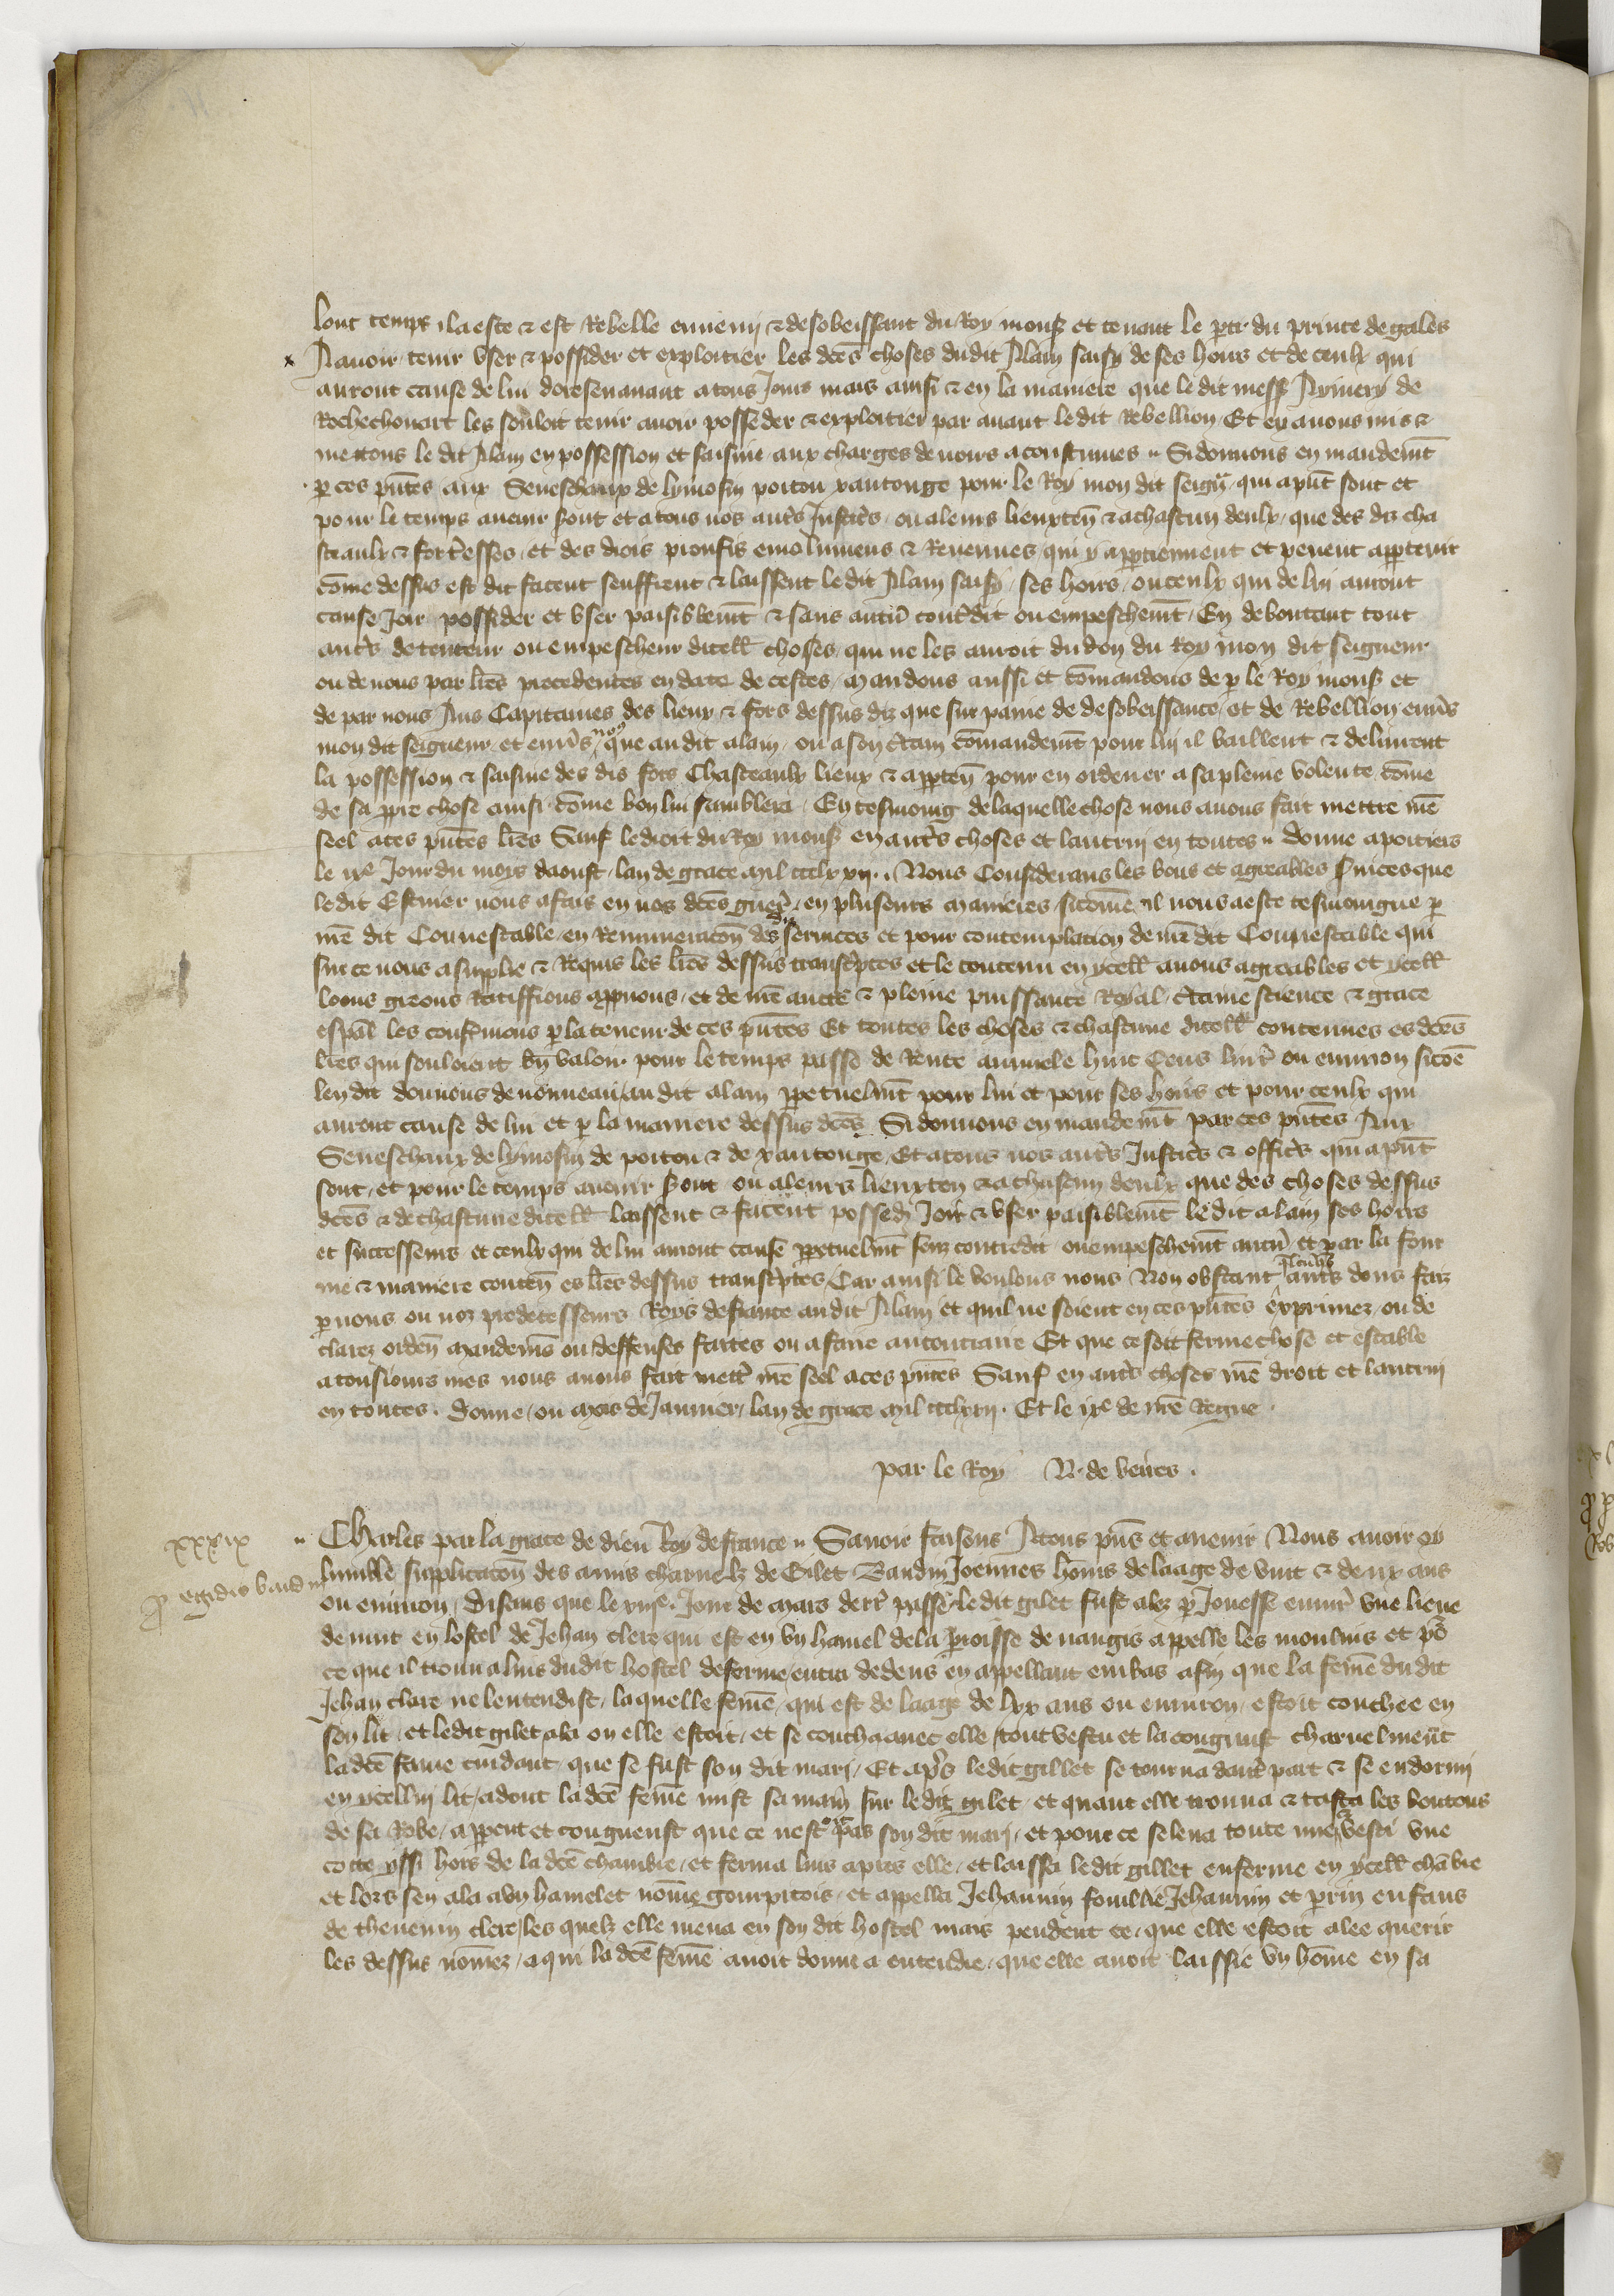 lonc temps il a este & est Rebelle ennemi & desobeissant du Roy mons et tenant le parti du prince de gales
A avoir tenir user & possider et exploitier les dces choses du dit Alain saisy de ses hoirs et de ceulx qui
auront cause de lui doresenavant a tous jours mais ainsi & en la maniere que le dit mess Aymery de
Rochechouart les souloit tenir avoir posseder & exploitier par avant le dit Rebellion Et en avons mis &
mettons le dit Alain en possession et saisine aux charges devoirs acoustumes Si donnons en mandemt
p ces pntes aux Seneschaux de lymosin poitou xantonge pour le Roy mon dit seignr qui a pnt sont et
pour le temps avenir seront et a tous nos autres Justiciers ou a leurs lieuxten & a chascun deulx que des diz cha
steaulx & forteresses et des drois proufis emolumens & Revenues qui y appartiennent et pevent appartenir
come dessus est dit facent seuffrent & laissent le dit Alain saisy ses hoirs ou ceulx qui de lui auront
cause Joir possider et user paisiblemt & sans aucun contredit ou empeschemt En deboutant tout
autre detenteur ou empescheur dicell choses qui ne les auroit du don du Roy mon dit seigneur
ou de nous par lres precedentes en date de cestes mandons aussi et comandons de p le Roy mons et
de par nous Aus Capitaines des lieux & fors dessus diz que sur paine de desobeissance et de Rebellion envers
mon dit seigneur et envers nous que au dit alain ou a son certain comandemt pour lui il baillent & delivrent
la possession & saisine des dis fors Chasteaulx lieux & apparten pour en ordener a sa pleine volente come
de sa ppre chose ainsi come bon lui samblera En tesmoing de laquelle chose nous avons fait mettre nre
seel a ces pntes lres Sauf le droit du Roy mons en autres choses et lautruy en toutes Donne a poitiers
le ixe Jour du mois daoust lan de grace mil ccclxxij Nous Considerans les bons et agreables services que
le dit Escuier nous a fais en nos dces guerres en plusieurs manieres sicome il nous a este tesmoingne p
nre dit Connestable en Remuneracon des diz services et pour contemplacion de nre dit Connestable qui
sur ce nous a supplie & Requis les lres dessus transcriptes et le contenu en ycell avons agreables et ycell
loons greons Ratiffions approuvons et de nre aucte & pleine puissance Royal certaine science & grace
espal les confermons p la teneur de ces pntes Et toutes les choses & chascune dicell contenues es dces
lres qui souloient bn valoir pour le temps passe de Rente annuele huit Cens livres ou environ sicoe
len dit donnons de nouveau au dit alain ppetuelmt pour lui et pour ses hoirs et pour ceulx qui
auront cause de lui et p la maniere dessus dces Si donnons en mandemt par ces pntes Aux
Seneschaux de lymosin de poitou & de xantonge Et a tous nos autres Justiciers & officiers qui a pnt
sont et pour le temps avenir seront ou a leurs lieuxten & a chascun deulx que des choses dessus
dces & de chascune dicell laissent & facent posseder Joir & user paisiblemt le dit alain ses hoirs
et successeurs et ceulx qui de lui auront cause ppetuelmt senz contredit ou empeschemt aucun et par la four
me & maniere conten es lres dessus transcriptes Car ainsi le voulons nous Non obstant quelconques autres dons faiz
p nous ou noz predecesseurs Roys de france au dit Alain et quil ne soient en ces pntes exprimez ou de
clarez orden mandems ou deffenses faictes ou a faire au contraire Et que ce soit ferme chose et estable
a tousiours mes nous avons fait mettre nre seel a ces pntes Sauf en autres choses nre droit et lautruy
en toutes Donne ou mois de Janvier lan de grace mil ccclxxij Et le ixe de nre Regne
par le Roy N. de veires
xxxix
p egidio baudin
Charles par la grace de dieu Roy de france Savoir faisons A tous pns et avenir Nous avoir oy
lumble supplicacon des amis charnelz de Gilet Baudin Joennes homs de laage de vint & deux ans
ou environ Disans que le Jour de Mars derr passe le dit gilet fust alez p Jouesse environ une lieue
de nuit en lostel de Jehan clerc qui est en un hamel de la parroisse de nangis appelle les moulins et po
ce que il trouva luis du dit hostel deferme entra dedens en appellant en bas afin que la feme du dit
Jehan clerc ne lentendist laquelle feme qui est de laage de lxx ans ou environ estoit couchee en
son lit et ledit gilet ala ou elle estoit et se coucha avec elle tout vestu et la congnust charnelment
la dce feme cuidant que se fust son dit mari Et apres ledit gillet se tourna dautre part & se endormi
en ycellui lit adont la dce feme mist sa main sur ledit gilet et quant elle trouva & tasta les boutons
de sa Robe appercut et congneust que ce nestoit pas son dit mari et pour ce se leva toute nue & vesti une
cotte yssi hors de la dce chambre et ferma luis apres elle et laissa ledit gillet enferme en ycell chabre
et lors sen ala a un hamelet nome gourpitois et appella Jehannin fouille Jehannin et perrin enfans
de thevenin clerc les quelz elle mena en son dit hostel mais pendent ce que elle estoit alee querir
les dessus nomez a qui la dce feme avoit donne a entendre que elle avoit laissie un home en sa